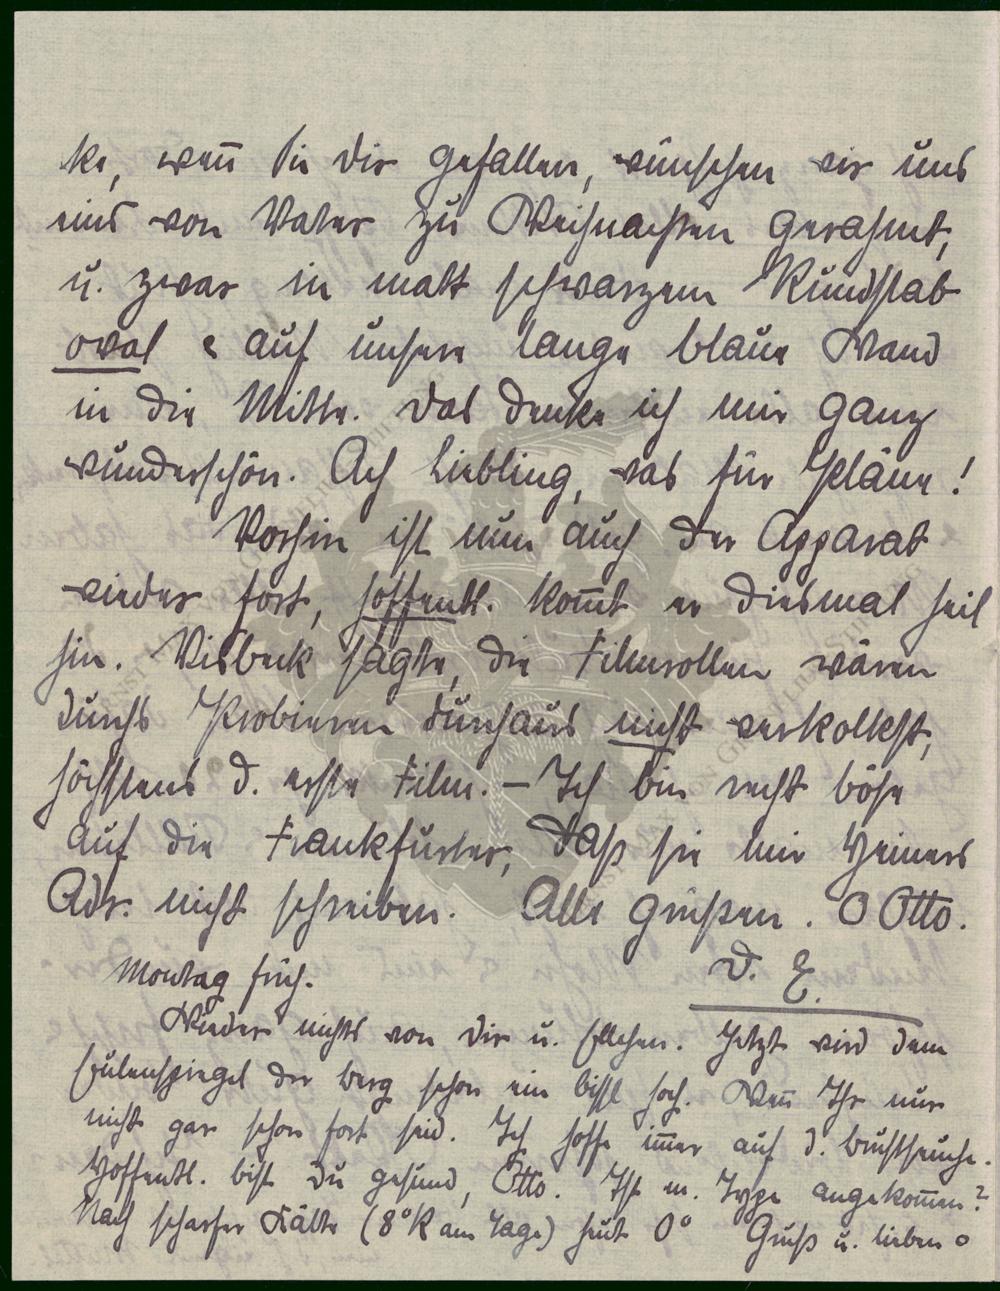 ke, wenn sie dir gefallen, wünschen wir uns
eins von Vater zu Weihnachten gerahmt,
u. zwar in matt schwarzem Rundstab
oval & auf unsere lange blaue Wand
in die Mitte. Das denke ich mir ganz
wunderschön. Ach Liebling, was für Pläne!
Vorhin ist nun auch der Apparat
wieder fort, hoffentl. kommt er diesmal heil
hin. Visbeck sagte, die Filmrollen wären
durchs Probieren durchaus nicht verkolkst,
höchstens d. erste Film. – Ich bin recht böse
auf die Frankfurter, daß sie mir Heiners
Adr. nicht schreiben. Alle grüßen. O Otto.
D. E.
Montag früh.
Wieder nichts von dir u. Ellchen. Jetzt wird dem
Eulenspiegel der Berg schon ein bissl hoch. Wenn Ihr nur
nicht gar schon fort seid. Ich hoffe immer auf d. Brustseuche.
Hoffentl. bist du gesund, Otto. Ist m. Type angekommen?
Nach scharfer Kälte (8°R am Tage) heut 0° Gruß u. lieben o